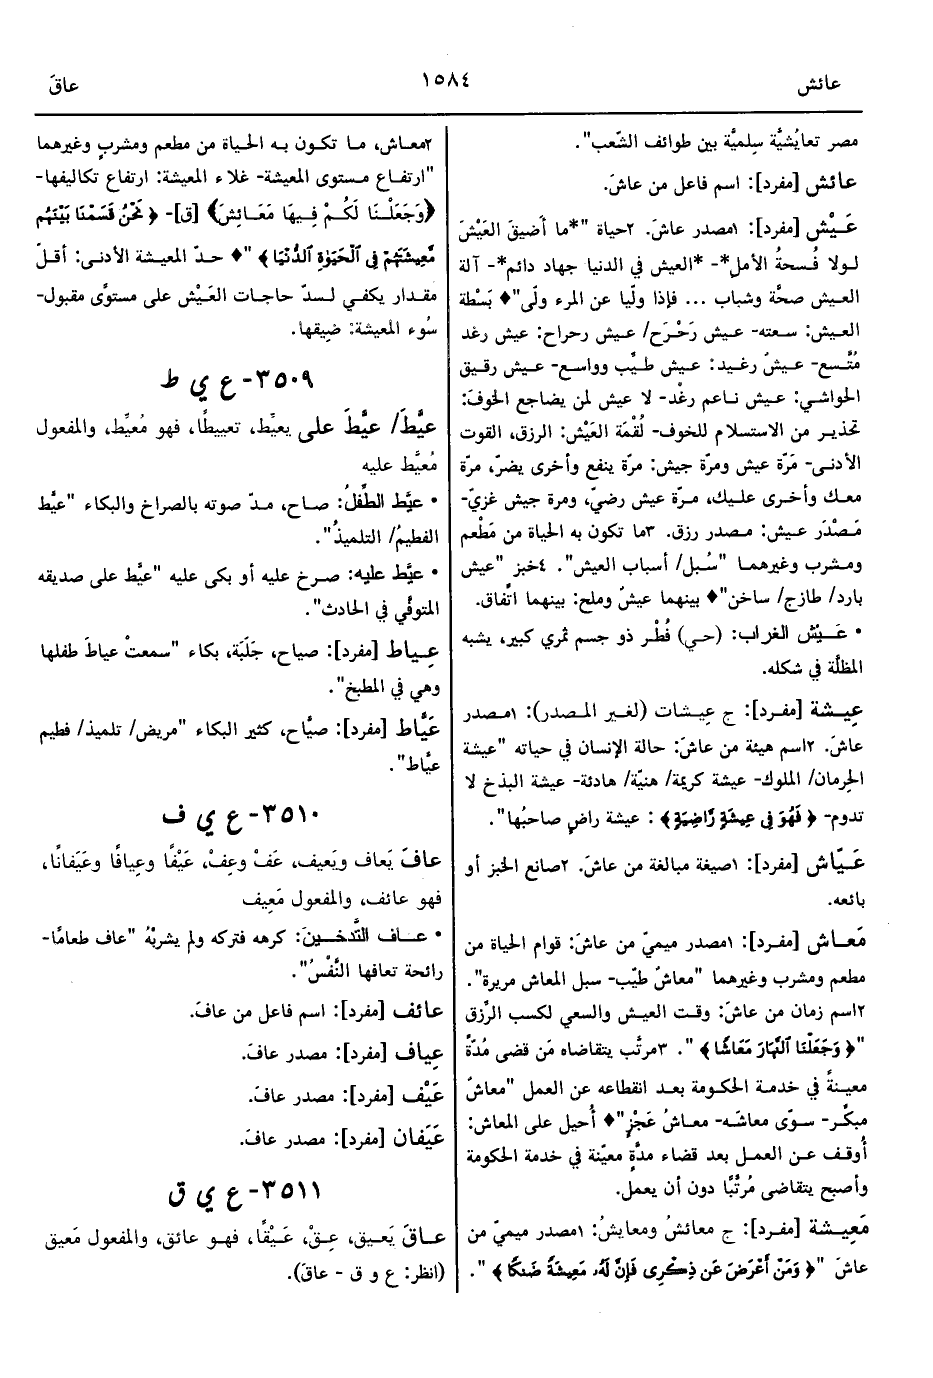 عائش
١٥٨٤
عاقَ
مصر تعايُشيَّة سِلميَّة بين طوائف الشّعب".
عائش [مفرد]: اسم فاعل من عاشَ.
عَيْش [مفرد]: ١مصدر عاشَ. ٢حياة "*ما أضيقَ العَيْشَ
لولا فُسحةُ الأملِ*- *العيش في الدنيا جهاد دائم*- آلة
العيش صحَّة وشباب ... فإذا ولَّيا عن المرء ولّى"♦ بَسْطة
العيش: سعته- عيش رَحْرَح/ عيش رحراح: عيش رغد
مُتَّسع- عيشٌ رغيد: عيش طيِّب وواسع- عيش رقيق
الحواشي: عيش ناعم رغْد- لا عيش لمن يضاجع الخوفَ:
تحذير من الاستسلام للخوف- لُقْمَة العَيْش: الرزق، القوت
الأدنى- مَرّة عيش ومرّة جيش: مرّة ينفع وأخرى يضرّ، مرّة
معك وأخرى عليك، مرّة عيش رضيّ، ومرة جيش غزيّ-
مَصْدَر عيش: مصدر رزق. ٣ما تكون به الحياة من مَطْعم
ومشرب وغيرهما "سُبل/ أسباب العيش". ٤خبز "عيش
بارد/ طازج/ ساخن"♦ بينهما عيشٌ وملح: بينهما اتِّفاق.
• عَيْش الغراب: (حي) فُطْر ذو جسم ثمري كبير، يشبه
المظلَّة في شكله.
عِيشة [مفرد]: ج عِيشات (لغير المصدر): ١مصدر
عاشَ. ٢اسم هيئة من عاشَ: حالة الإنسان في حياته "عيشة
الحِرمان/ الملوك- عيشة كريمة/ هنيّة/ هادئة- عيشة البذخ لا
تدوم- ﴿ فَهُوَ فِي عِيشَةٍ رَّاضِيَةٍ ﴾ : عيشة راضٍ صاحبُها".
عَيَّاش [مفرد]: ١صيغة مبالغة من عاشَ. ٢صانع الخبز أو
بائعه.
مَعاش [مفرد]: ١مصدر ميميّ من عاشَ: قوام الحياة من
مطعم ومشرب وغيرهما "معاشٌ طيِّب- سبل المعاش مريرة".
٢اسم زمان من عاشَ: وقت العيش والسعي لكسب الرِّزق
"﴿ وَجَعَلْنَا ٱلنَّهَارَ مَعَاشًا ﴾ ". ٣مرتَّب يتقاضاه مَن قضى مُدَّةً
معينةً في خدمة الحكومة بعد انقطاعه عن العمل "معاشٌ
مبكّر- سوّى معاشَه- معاشُ عَجْزٍ"♦ أُحيل على المعاش:
أُوقف عن العمل بعد قضاء مدَّةٍ معيّنة في خدمة الحكومة
وأصبح يتقاضى مُرتَّبًا دون أن يعمل.
مَعِيشة [مفرد]: ج معائشُ ومعايشُ: ١مصدر ميميّ من
عاشَ "﴿ وَمَنْ أَعْرَضَ عَن ذِكْرِى فَإِنَّ لَهُۥ مَعِيشَةً ضَنكًا ﴾ ".
٢معاش، ما تكون به الحياة من مطعم ومشرب وغيرهما
"ارتفاع مستوى المعيشة- غلاء المعيشة: ارتفاع تكاليفها-
﴿وَجَعَلْنَا لَكُمْ فِيهَا مَعَائِشَ﴾ [ق]- ﴿ نَحْنُ قَسَمْنَا بَيْنَهُم
مَّعِيشَتَهُمْ فِى ٱلْحَيَوٰةِ ٱلدُّنْيَا ﴾ "♦ حدّ المعيشة الأدنى: أقلّ
مقدار يكفي لسدّ حاجات العَيْش على مستوًى مقبول-
سُوء المعيشة: ضيقها.
٣٥٠٩- ع ي ط
عيَّطَ/ عيَّطَ على يعيِّط، تعييطًا، فهو مُعيِّط، والمفعول
مُعيَّط عليه
• عيَّط الطِّفلُ: صاح، مدّ صوته بالصراخ والبكاء "عيَّط
الفطيمُ/ التلميذُ".
• عيَّط عليه: صرخ عليه أو بكى عليه "عيَّط على صديقه
المتوفَّى في الحادث".
عِياط [مفرد]: صياح، جَلَبَة، بكاء "سمعتْ عياطَ طفلها
وهي في المطبخ".
عَيَّاط [مفرد]: صيَّاح، كثير البكاء "مريض/ تلميذ/ فطيم
عيَّاط".
٣٥١٠- ع ي ف
عافَ يَعاف ويَعيف، عَفْ وعِفْ، عَيْفًا وعيافًا وعَيَفانًا،
فهو عائف، والمفعول مَعِيف
• عاف التَّدخينَ: كرهه فتركه ولم يشربْهُ "عاف طعامًا-
رائحة تعافها النَّفْسُ".
عائف [مفرد]: اسم فاعل من عافَ.
عِياف [مفرد]: مصدر عافَ.
عَيْف [مفرد]: مصدر عافَ.
عَيَفان [مفرد]: مصدر عافَ.
٣٥١١- ع ي ق
عاقَ يَعيق، عِقْ، عَيْقًا، فهو عائق، والمفعول مَعيق
(انظر: ع و ق - عاقَ).